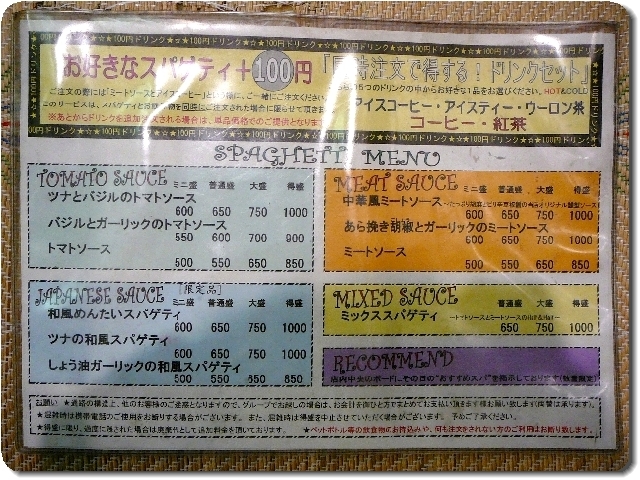 お好きなスパゲティ+100円
「同時注文で得する!ドリンクセット」
ご注文の際には「ミートソースとアイスコーヒー」という様に、ご一緒にご注文ください。
このサービスは、スパゲティとお飲み物を同時にご注文された場合に限らせて頂きます。
※あとからドリンクを追加注文される場合は、単品価格でのご提供となります。
5つのドリンクの中からお好きな1品をお選びください。HOT&COLD
アイスコーヒー・アイスティー・ウーロン茶
コーヒー・紅茶
SPAGHETTI MENU
TOMATO SAUCE ミニ盛 普通盛 大盛 得盛
ツナとバジルのトマトソース
600 650 750 1000
バジルとガーリックのトマトソース
550 600 700 900
トマトソース
500 550 650 850
MEAT SAUCE ミニ盛 普通盛 大盛 得盛
中華風ミートソース
600 650 750 1000
あら挽き胡椒とガーリックのミートソース
600 650 750 1000
ミートソース
500 550 650 850
JAPANESE SAUCE 「限定品」 ミニ盛 普通盛 大盛 得盛
和風めんたいスパゲティ
600 650 750 1000
ツナの和風スパゲティ
600 650 750 1000
しょう油ガーリックの和風スパゲティ
500 550 650 850
MIXED SAUCE 普通盛 大盛 得盛
ミックススパゲティ ~トマトソースとミートソースのHalf&Half~
650 750 1000
RECOMMEND
店内中央のボードにその日の"おすすめスパ"を掲示しております(数量限定)
お願い ★通路の構造上、他のお客様のご迷惑となりますので、グループでお越しの場合は、お会計を御ひと方でまとめてお支払い頂きます様お願い致します(両替は承ります)。
★混雑時は携帯電話のご使用をお断りする場合がございます。また、混雑時は得盛を中止させていただく場合がございます。予めご了承ください。
★得盛に限り、過度に残された場合は廃棄代として追加料金を頂いております。 ★ペットボトル等の飲食物のお持込みや、何も注文をされない方のご利用はお断り致します。